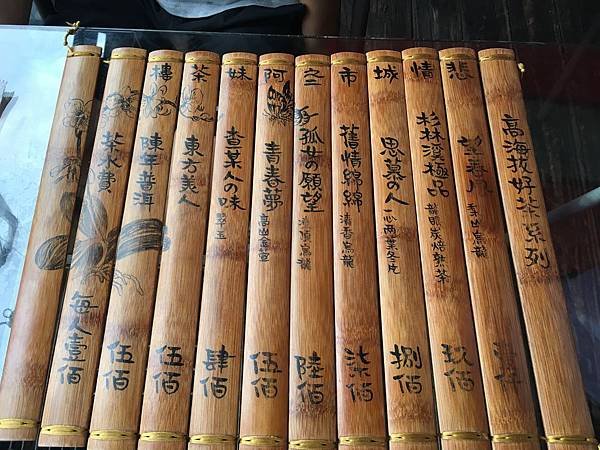 高海拔好茶系列
悲 望海風 梨山烏龍 壹仟
情 杉林溪極品 龍眼炭焙熟茶 玖佰
城 思慕の人 一心兩葉冬片 捌佰
市 舊情綿綿 清香烏龍 柒佰
孤女の願望 凍頂烏龍 陸佰
阿 青春夢 高山金萱 伍佰
妹 查某人の味 翠玉 肆佰
茶 東方美人 伍佰
樓 陳年普洱 伍佰
茶水費 每人壹佰